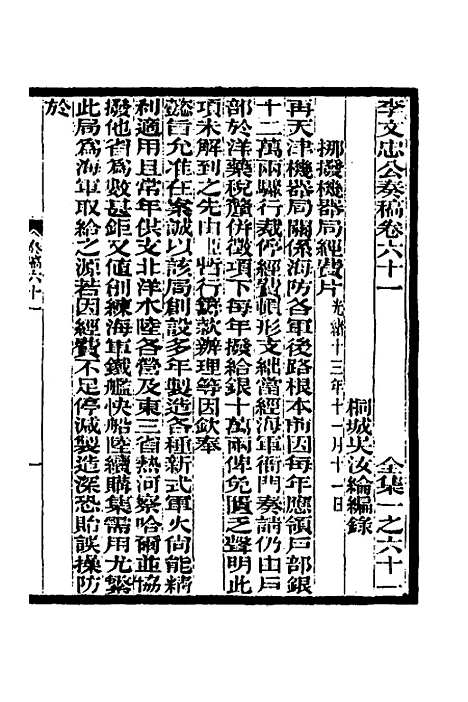 李文忠公奏稿卷六十一
全集一之六十一
桐城吳汝綸編錄
挪撥機器局經費片光緒十三年十一月十一日
再天津機器局關係海防各軍後路根本前因每年應領戶部銀
十二萬兩驟行裁停經費頓形支絀當經海軍衙門奏請仍由戶
部於洋藥稅釐併徵項下每年撥給銀十萬兩俾免匱乏聲明此
項未解到之先由 暫行籌款辦理等因欽奉
懿旨允准在案誠以該局創設多年製造各種新式軍火尚能精
利適用且常年供支北洋水陸各營及東三省熱河察哈爾並協
撥他省為數甚鉅又值創練海軍鐵艦快船陸續購集需用尤繁
此局為海軍取給之源若因經費不足停減製造深恐貽誤操防
於
奏稿六十一
一